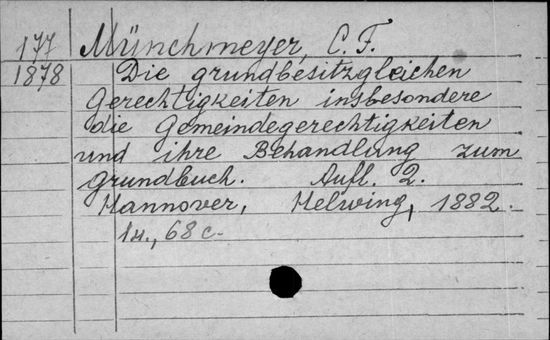 177 Münchmeyer, C. F.
1878 Die grundbesitzgleichen
Gerechtigkeiten insbesondere
die Gemeindegerechtigkeiten
und ihre Behandlung zum
Grundbuch. Aufl. 2.
Hannover, Helwing, 1882.
1н., 68 с.